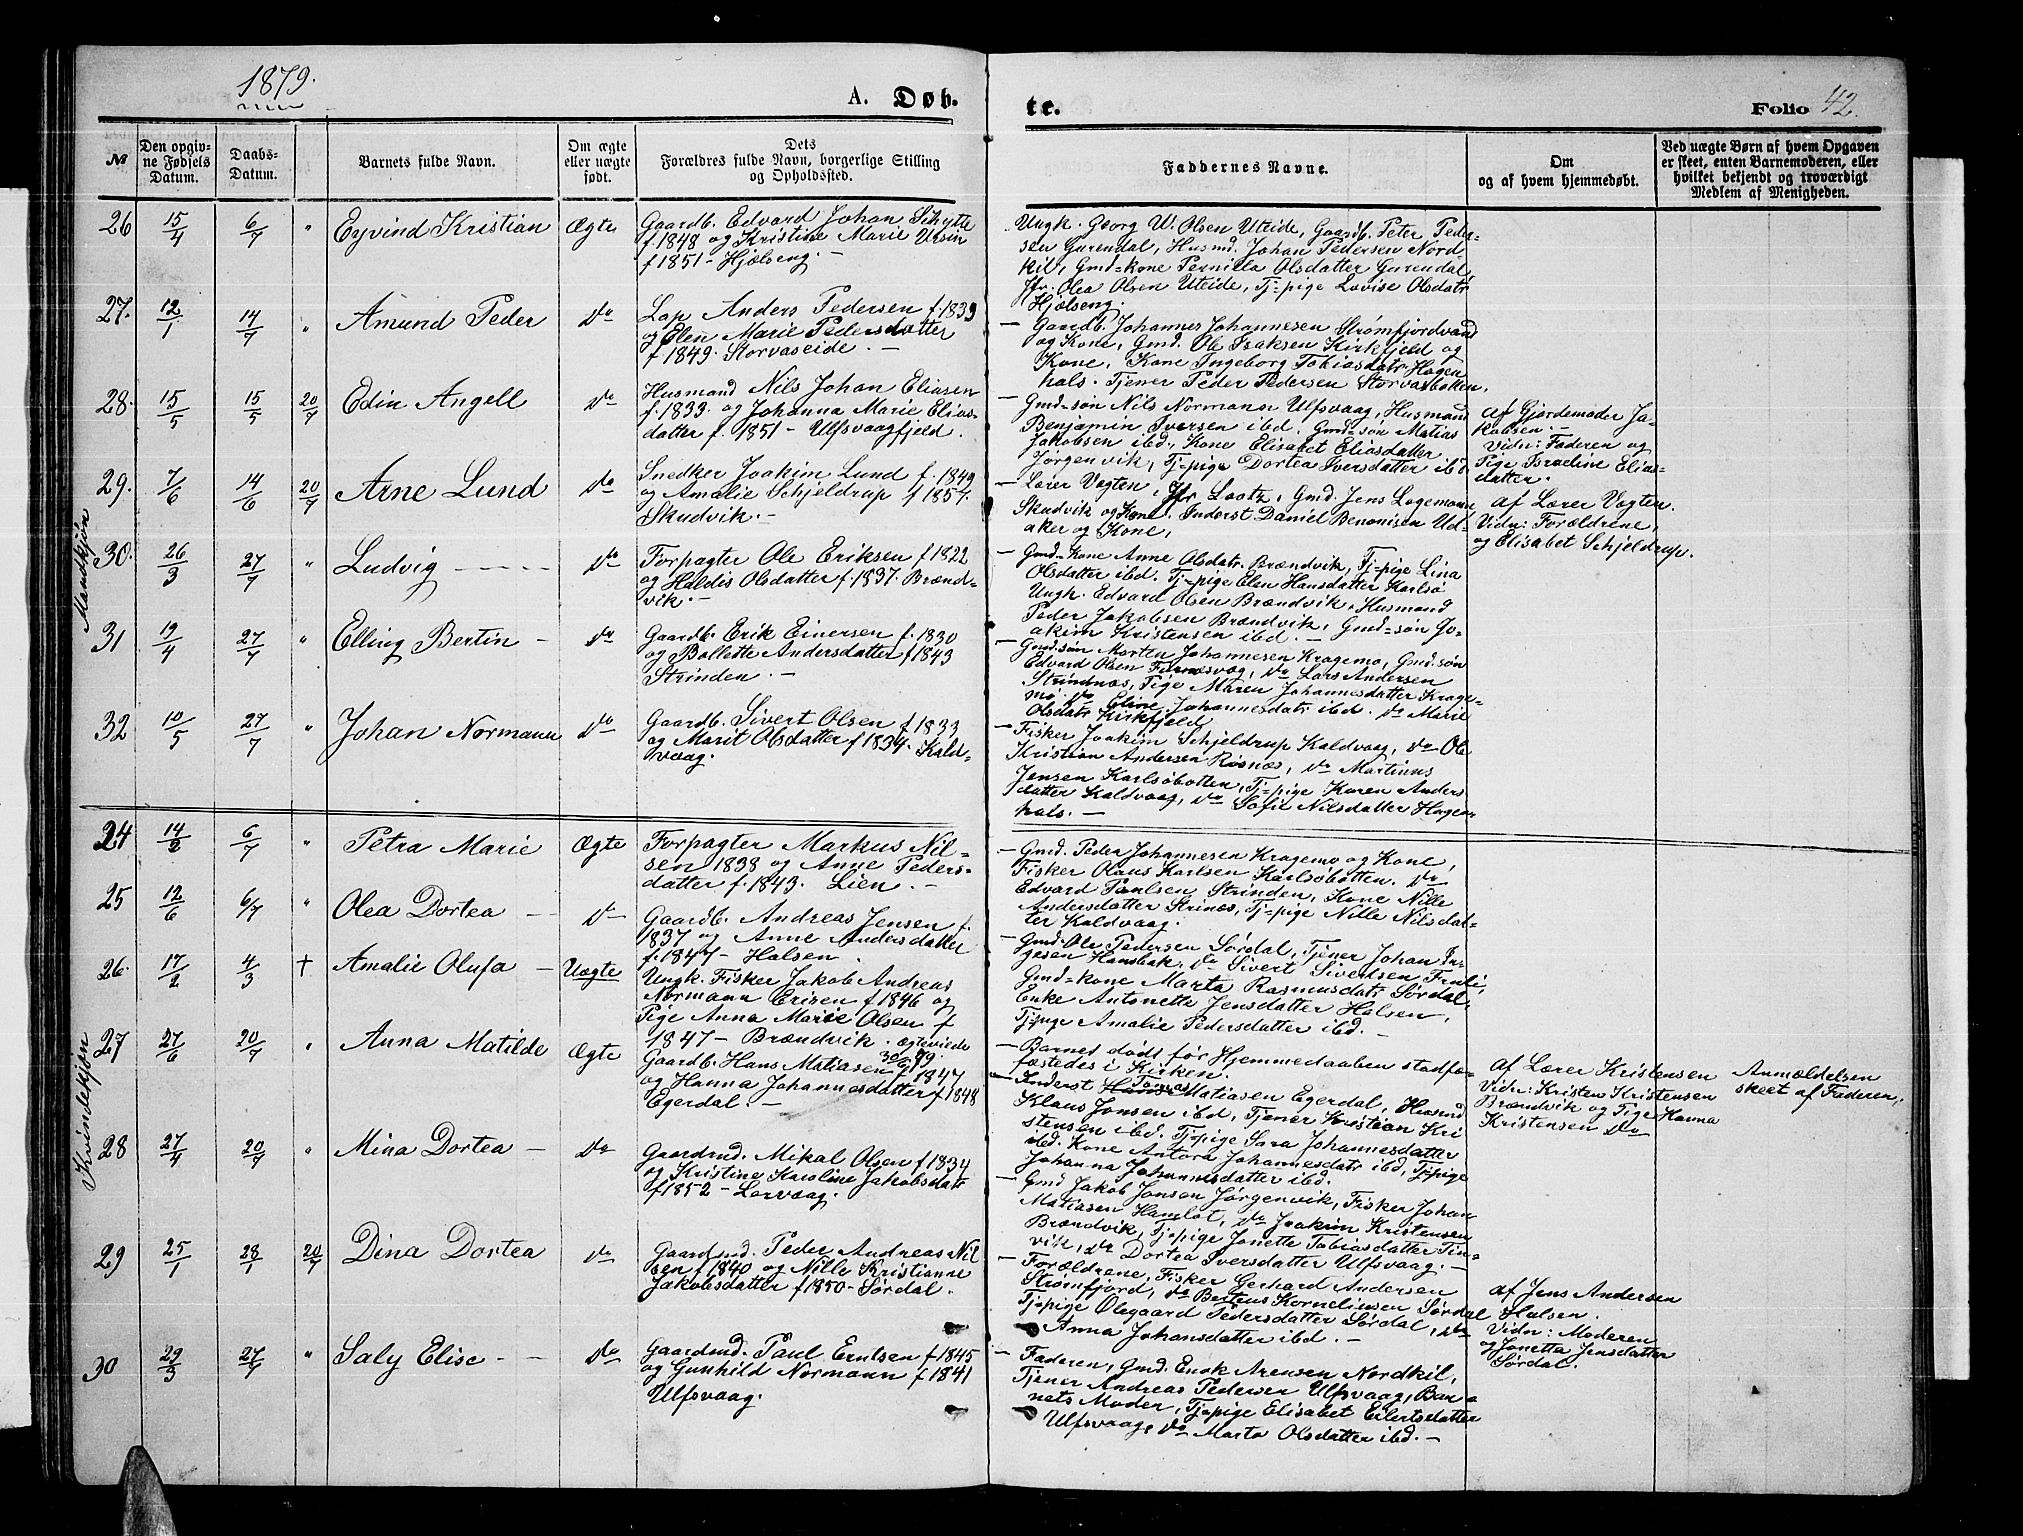 1879.
A. Døb-
te.
Folio 42.
№
Den opgiv-
ne Fødsels
Datum.
Daabs-
Datum.
Barnets fulde Navn.
Om ægte
eller uægte
født.
Dets
Forældres fulde Navn, borgerlige Stilling
og Opholdssted.
Faddernes Navne.
Om
og af hvem hjemmedøbt.
Ved uægte Børn af hvem Opgaven
er skeet, enten Barnemoderen, eller
hvilket bekjendt og troværdigt
Medlem af Menigheden.
Mandkjøn
26 15/4 6/7 " Eyvind Kristian Ægte
Gaardb. Edvard Johan Schytte
f. 1848 og Kristine Marie Ursin
f 1851 - Hjælseng. -
Ungk. Georg W. Olsen Uteide, Gaardb. Peter Peder-
sen Gurendal, Husmd. Johan Pedersen Nord-
kil, Gmd=kone Pernilla Olsdatter Gurendal,
Jfr. Olea Olsen Uteide, Tj=pige Lovise Olsdatr
Hjælseng.
27. 12/1 14/7 " Amund Peder Do
Lap Anders Pedersen f. 1839
og Elen Marie Pedersdatter
f 1849. Storvaseide. -
- Gaardb. Johannes Johannesen Strømfjordvand
og Kone, Gmd. Ole Isaksen Kirkfjeld og
Kone, Kone Ingeborg Tobiasdatr Hagen
hals. Tjener Peder Pedersen Storvasbotten.
28. 15/5 15/5 20/7 Edin Angell Do
Husmand Nils Johan Eliasen
f. 1833. og Johanna Marie Elias-
datter f. 1851 - Ulfsvaagfjeld.
- Gmd=søn Nils Normann Ulfsvaag, Husmand
Benjamin Iversen ibd. Gmd=søn Matias
Jakobsen ibd., Kone Elisabet Eliasdatter
Jørgenvik, Tj=pige Dortea Iversdatter ibd
af Gjordemoder Ja-
kobsen. -
Vidn: Faderen og
Pige Israeline Elias-
datter.
29. 7/6 14/6 20/7 Arne Lund Do
Snedker Joakim Lund f. 1849
og Amalie Schjeldrup f 1857.
Skudvik. -
- Lærer Vogten, Jfr Lootz, Gmd. Jens Lagemann
Skudvik og Kone. Inderst Daniel Benonisen Ud-
aker og Kone,
af Lærer Vogten.
Vidn: Forældrene,
og Elisabet Schjeldrup.
30. 26/3 27/7 " Ludvig - Do
Forpagter Ole Eriksen f. 1822
og Haldis Olsdatter f. 1837. Brænd-
vik. -
- Gmd=Kone Anne Olsdatr. Brændvik, Tj=pige Lina
Olsdatter ibd. Tj=pige Elen Hansdatter Karlsø
Ungk. Edvard Olsen Brændvik, Husmand
Peder Jakobsen Brændvik, Gmd=søn Jo-
akim Kristensen ibd. -
31 19/4 27/7 " Elling Bertin - Do
Gaardb. Erik Einersen f. 1830
og Bollette Andersdatter f 1843
Strinden. -
- Gmd.søn Morten Johannesen Kragemo, Gmd.søn
Edvard Olsen Furnæsvaag, Do Lars Andersen
Strindnæs, Pige Maren Johannesdatter Krage-
mo. Do Eline Johannesdatr ibd. Do Marie
Olsdatr Kirkfjeld
32 10/5 27/7 " Johan Normann Do
Gaardb. Sivert Olsen f 1833
og Marit Olsdatter f 1834. Kald-
vaag.
- Fisker Joakim Schjeldrup Kaldvaag, Do Ole
Kristian Andersen Rösnæs, Do Martinus
Jensen Karlsöbotten, Tj=pige Karen Anders
datter Kaldvaag, Do Sofie Nilsdatter Hagen
hals. -
Kvindekjøn
24 14/2 6/7 " Petra Marie Ægte
Forpagter Markus Nil-
sen 1838 og Anne Peders-
datter f. 1843. Lien. -
- Gmd. Peder Johannesen Kragemo og Kone,
Fisker Olaus Karlsen Karlsöbotten. Do
Edvard Paulsen Strinden, Kone Nille
Andersdatter Strinæs, Tj=pige Nille Nilsdat-
ter Kaldvaag.
25 12/6 6/7 " Olea Dortea - Do
Gaardb. Andreas Jensen f.
1837 og Anne Andersdatter
f. 1847 - Halsen.
- Gmd. Ole Pedersen Sørdal, Tjener Johan In-
gesen Hansbak, Do Sivert Sivertsen
Gmd=kone Marta Rasmusdatr Sørdal,
Enke Antonette Jensdatter Halsen,
Tj=pige Amalie Pedersdatter ibd. -
26. 17/2 4/3 † Amalie Olufa - Uægte
Ungk. Fisker Jakob Andreas
Normann Erisen f 1846 og
Pige Anna Marie Olsen f
1847 - Brændvik. Ægteviede
30/6 79.
- Barnet dødt før Hjemmedaaben stadfæ-
stedes i Kirken.
af Lærer Kristensen
Vidn: Kristen Kristensen
Brændvik og Pige Hanna
Kristensen Do
Anmeldelsen
skeet af Faderen,
27 27/6 20/7 " Anna Matilde Ægte
Gaardb. Hans Matiasen f. 1847
og Hanna Johannesdatter f 1848
Egerdal. -
- Inderst Hans Tomas Matiasen Egerdal, Husmd
Klaus Jonsen ibd, Tjener Kristian Kri
stensen ibd. Tj=pige Sara Johannesdatter
ibd. Kone Antora Johannesdatr ibd, Tj=pige
Johanna Johannesdatter ibd.
28 27/4 20/7 " Mina Dortea - Do
Gaardmd. Mikal Olsen f 1834
og Kristine Karoline Jakobsdatr
f 1852 - Lorvaag.
- Gmd Jakob Jonsen Jørgenvik, Fisker Johan
Matiasen Hamlot, Do Joakim Kristensen
Brændvik, Tj=pige Jonette Tobiasdatter Tin-
vik, Do Dortea Iversdatter Ulfsvaag. -
29 25/1 28/1 20/7 Dina Dortea Do
Gaardmd. Peder Andreas Nil
sen f 1840 og Nille Kristianne
Jakobsdatter f 1850 - Sørdal.
- Forældrene, Fisker Gerhard Andersen
Strømfjord, Do Berteus Korneliusen Sørdal
Tj=pige Olegaard Pedersdatter Sørdal, Do
Anna Johansdatter ibd. -
af Jens Andersen
Halsen.
Vidn: Moderen
og Jonetta Jensdatter
Sørdal.
30 29/3 27/7 " Saly Elise - - Do
Gaardmd. Paul Erntsen f 1845
og Gunhild Normann f 1841
Ulfsvaag.
- Faderen, Gmd. Enok Arensen Nordkil,
Tjener Andreas Pedersen Ulfsvaag, Bar-
nets Moder, Tj=pige Elisabet Eilertsdatter
Ulfsvaag, Do Marta Olsdatter ibd. -